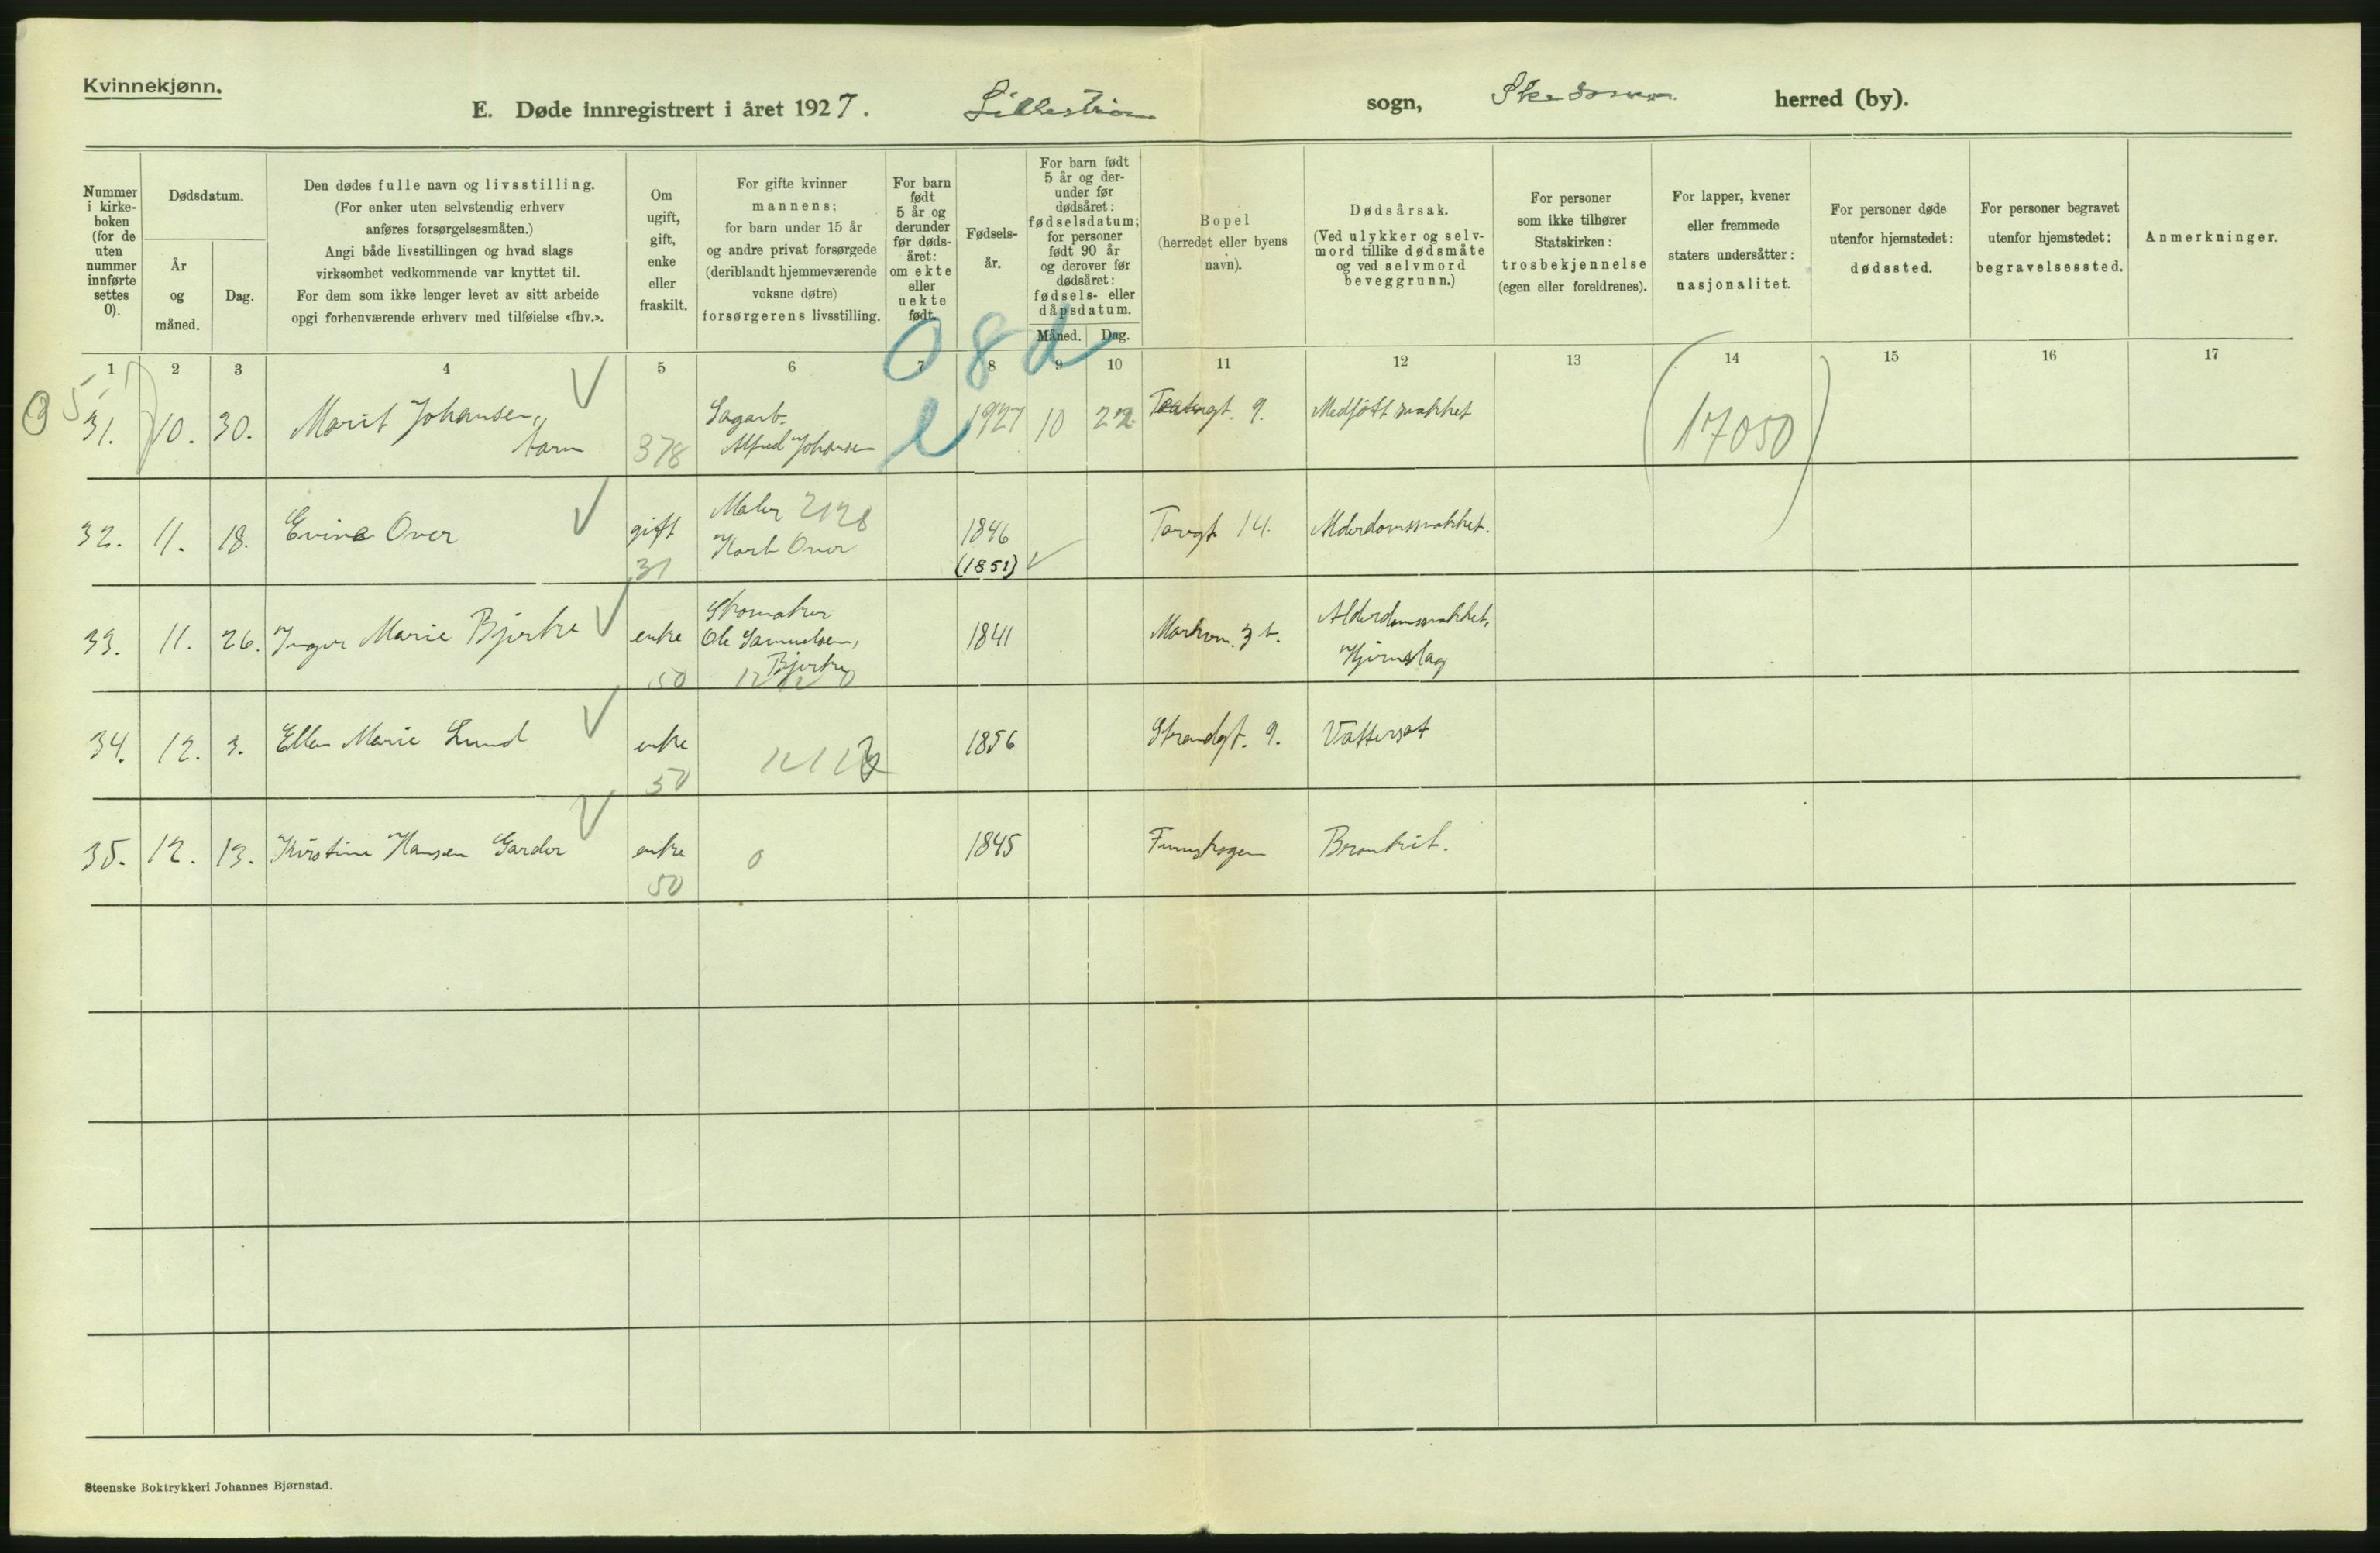 Kvinnekjønn.
E. Døde innregistrert i året 1927. Lillestrøm sogn, Skedsmo herred (by).
Nummer i kirke-boken (for de uten nummer innførte settes 0).
Dødsdatum.
År og måned.
Dag.
Den dødes fulle navn og livsstilling.
(For enker uten selvstendig erhverv
anføres forsørgelsesmåten.)
Angi både livsstillingen og hvad slags
virksomhet vedkommende var knyttet til.
For dem som ikke lenger levet av sitt arbeide
opgi forhenværende erhverv med tilføielse «fhv.».
Om
ugift,
gift,
enke
eller
fraskilt.
For gifte kvinner
mannens;
for barn under 15 år
og andre privat forsørgede
(deriblandt hjemmeværende
voksne døtre)
forsørgerens livsstilling.
For barn
født
5 år og
derunder
før døds-
året:
om ekte
eller
uekte
født.
Fødsels-
år.
For barn født
5 år og der-
under før
dødsåret:
fødselsdatum;
for personer
født 90 år
og derover før
dødsåret:
fødsels- eller
dåpsdatum.
Måned. Dag.
Bopel
(herredet eller byens
navn).
Dødsårsak.
(Ved ulykker og selv-
mord tillike dødsmåte
og ved selvmord
beveggrunn.)
For personer
som ikke tilhører
Statskirken:
trosbekjennelse
(egen eller foreldrenes).
For lapper, kvener
eller fremmede
staters undersåtter:
nasjonalitet.
For personer døde
utenfor hjemstedet:
dødssted.
For personer begravet
utenfor hjemstedet:
begravelsessted.
Anmerkninger.
1 2 3 4 5 6 7 8 9 10 11 12 13 14 15 16 17
31. 10. 30. Marit Johansen, barn 378 Sagarb. Alfred Johansen e 1927 10 22 gt. 9. Medfött svakhet (17050)
32. 11. 18. Evine Over gift 31 Maler 2128 Karl Over 1846 (1851) Torvgt 14. Alderdomssvakhet.
33. 11. 26. Inger Marie Bjerke enke 50 Skomaker Ole Samuelsen, Bjerke 1841 Markvn. 3 b. Alderdomssvakhet, Hjerneslag
34. 12. 3. Ellen Marie Lund enke 50 1856 Strandgt. 9. Vattersot
35. 12. 13. Kirstine Hansen Garder enke 50 0 1845 Funnskogen Bronkit.
Steenske Boktrykkeri Johannes Bjørnstad.